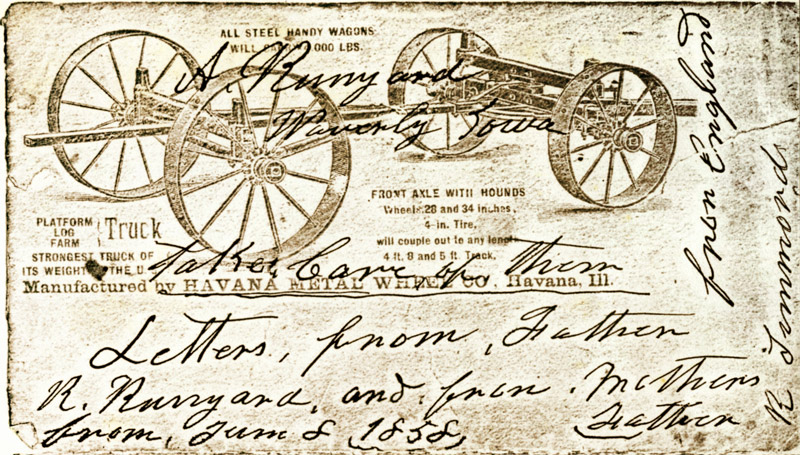 ALL STEEL HANDY WAGONS
WILL 000 LBS.
A. Runyard
Waverly Iowa
FRONT AXLE WITH HOUNDS
Wheels 28 and 34 inches,
4-in. Tire,
will couple out to any length
4 ft. 8 and 5 ft. Track,
PLATFORM
LOG
FARM
Truck
STRONGEST TRUCK OF
ITS WEIGHT THE U.
take Care of them
Manufactured by HAVANA METAL WHEEL CO., Havana, Ill.
Letters, from, Father
R. Runyard, and from Mothers
Father
from, June 8 1858,
from England
R Simmonds